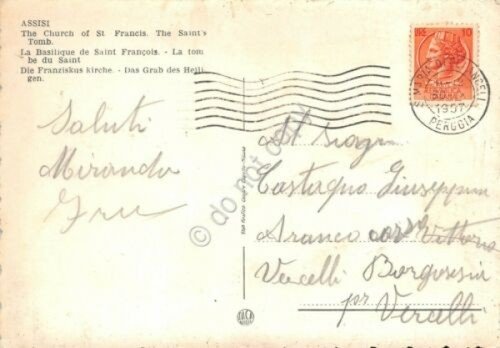 ASSISI
The Church of St Francis. The Saint's
Tomb.
La Basilique de Saint François. - La tom
be du Saint
Die Franziskus kirche. - Das Grab des Heili
gen.
LIRE 10
1957
PERUGIA
Saluti
Miranda
© do not copy
Castagno Giuseppina
Vittorio
Vercelli Borgosesia
per Vercelli